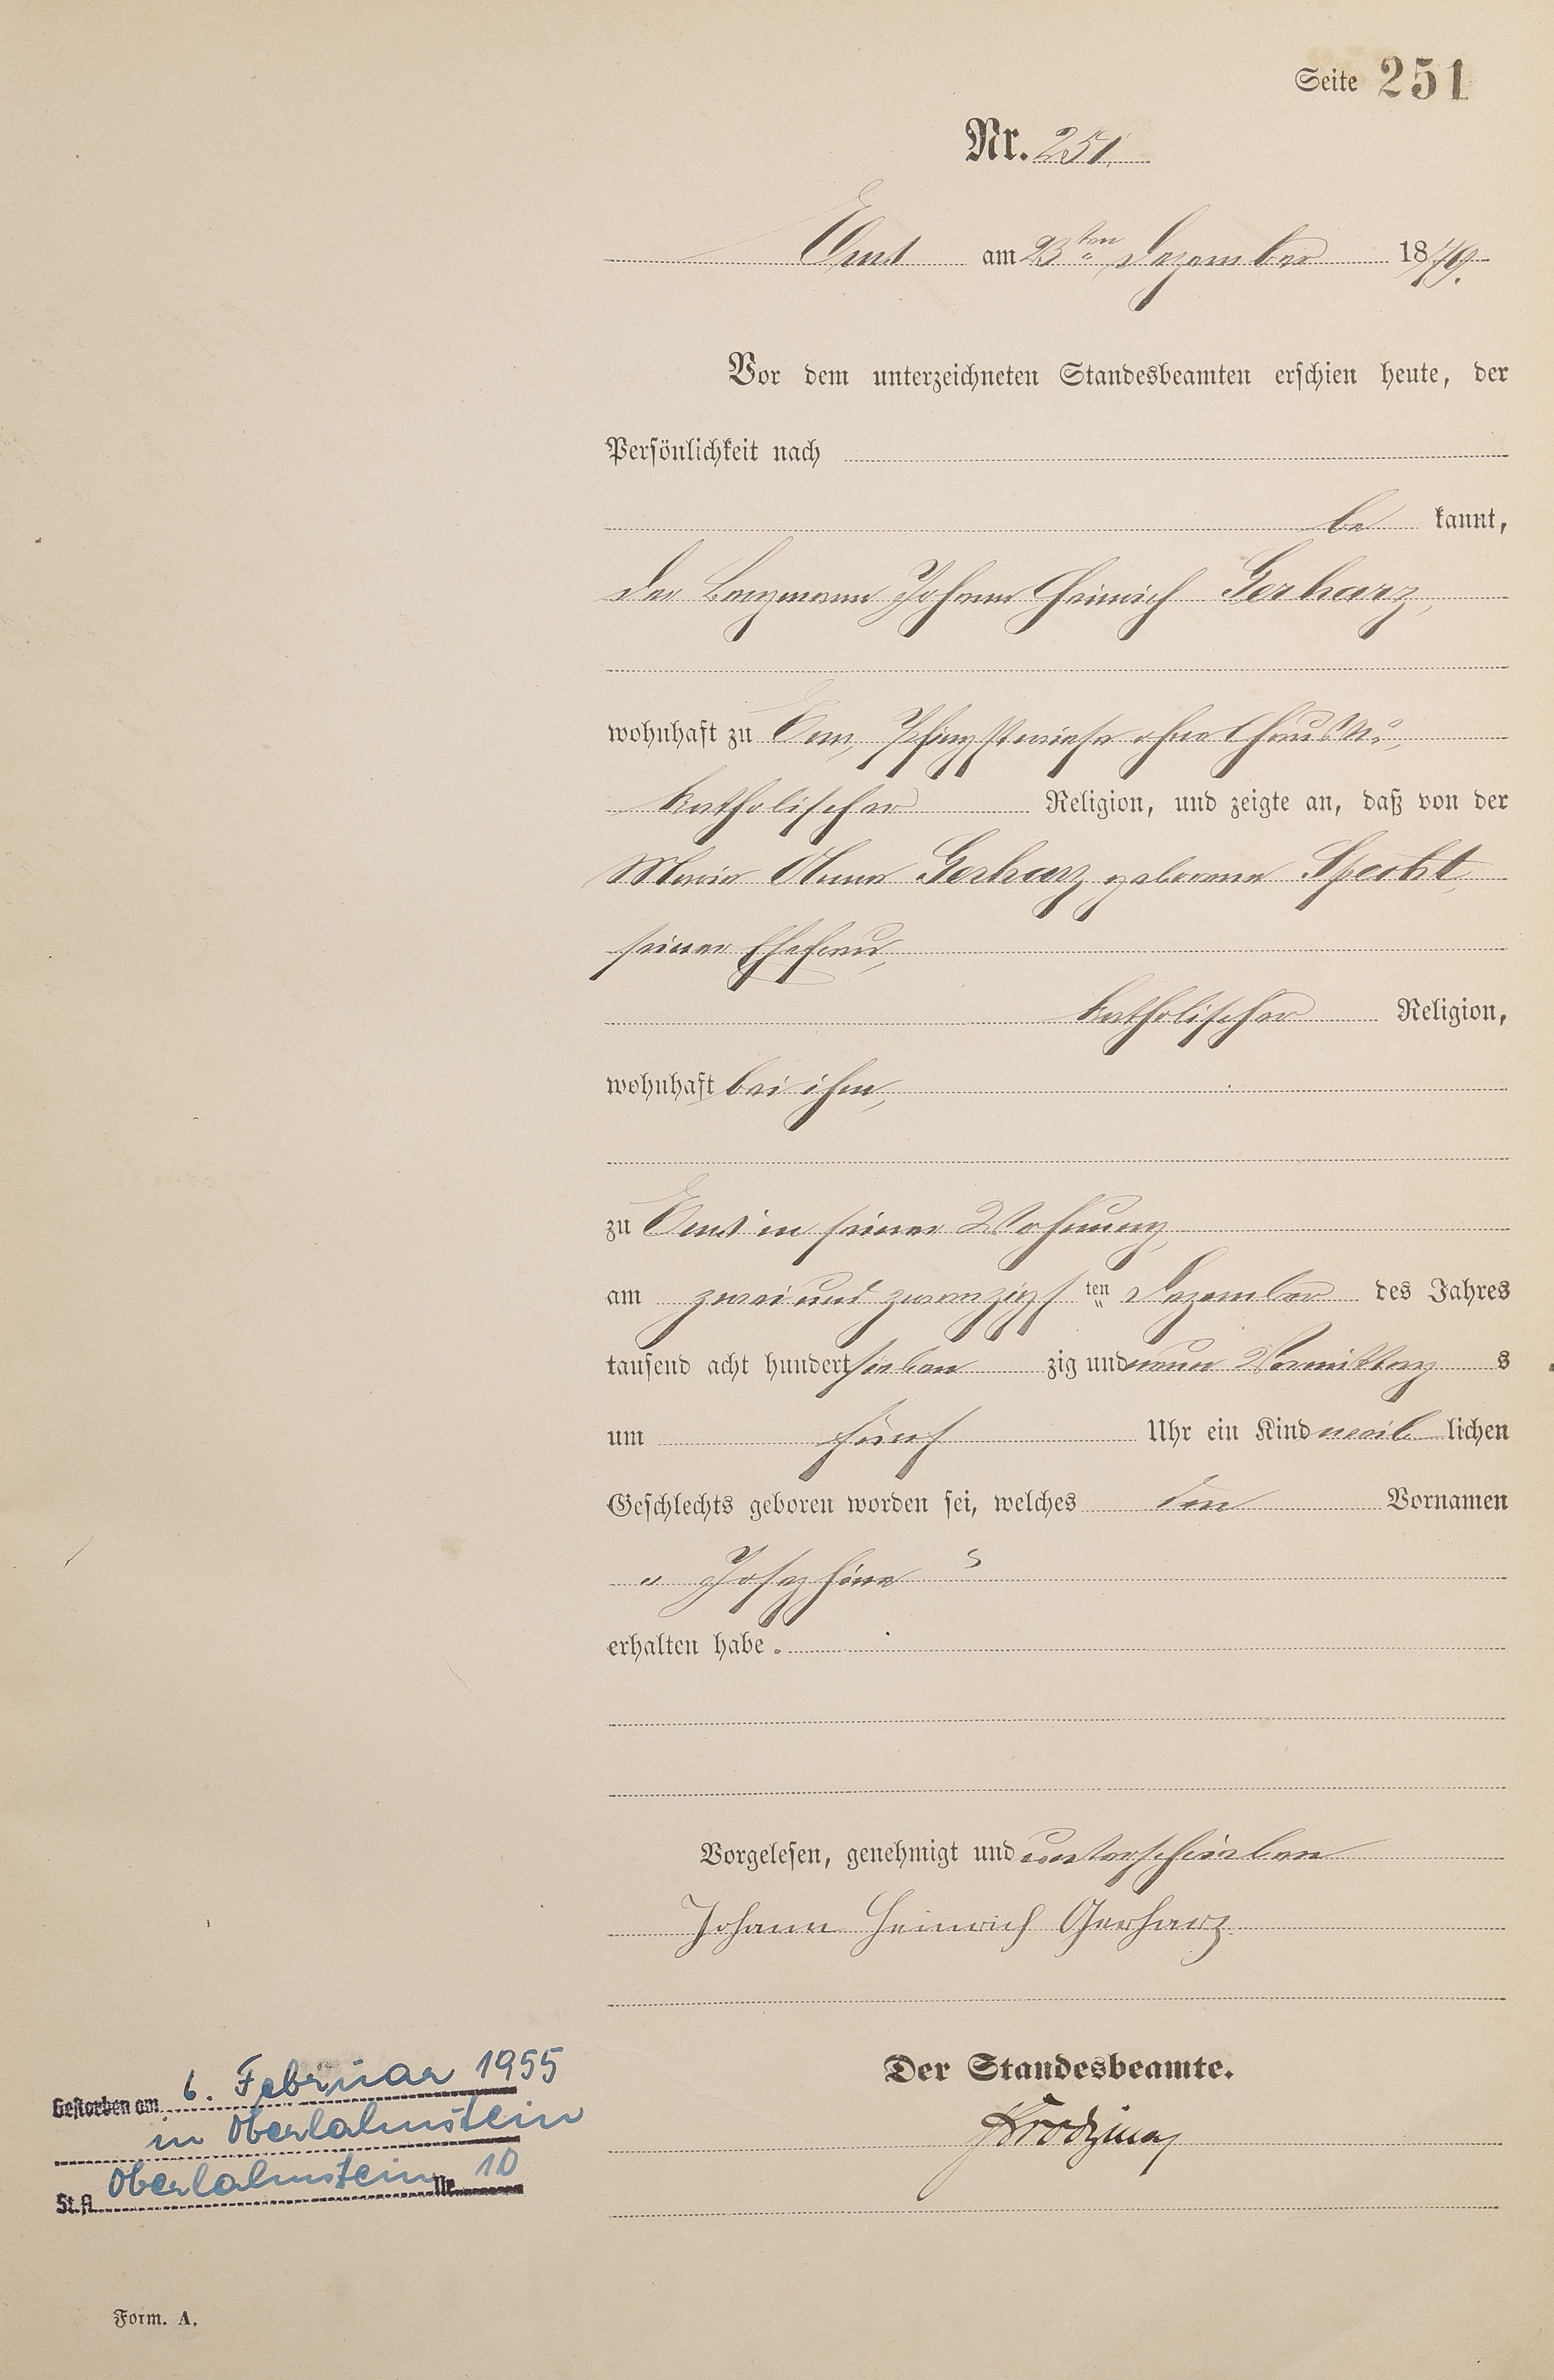 Seite 251
Nr. 251.
Ems am 23ten Dezember 1879.
Vor dem unterzeichneten Standesbeamten erschien heute, der
Persönlichkeit nach
be kannt,
der Bergmann Johann Heinrich Gerharz,
wohnhaft zu Ems, Pfingstwiese ohne Haus No,
katholischer Religion, und zeigte an, daß von der
Maria Anna Gerharz geborene Specht,
seiner Ehefrau,
katholischer Religion,
wohnhaft bei ihm,
zu Ems in seiner Wohnung,
am zwei und zwanzigsten Dezember des Jahres
tausend acht hundert sieben zig und neun Vormittags
um fünf Uhr ein Kind weiblichen
Geschlechts geboren worden sei, welches den Vornamen
„Josephine“
erhalten habe.
Vorgelesen, genehmigt und unterschrieben
Johann Heinrich Gerharz
Der Standesbeamte.
Gestorben am 6. Februar 1955
in Oberlahnstein
St.A. Oberlahnstein Nr. 10
Form. A.